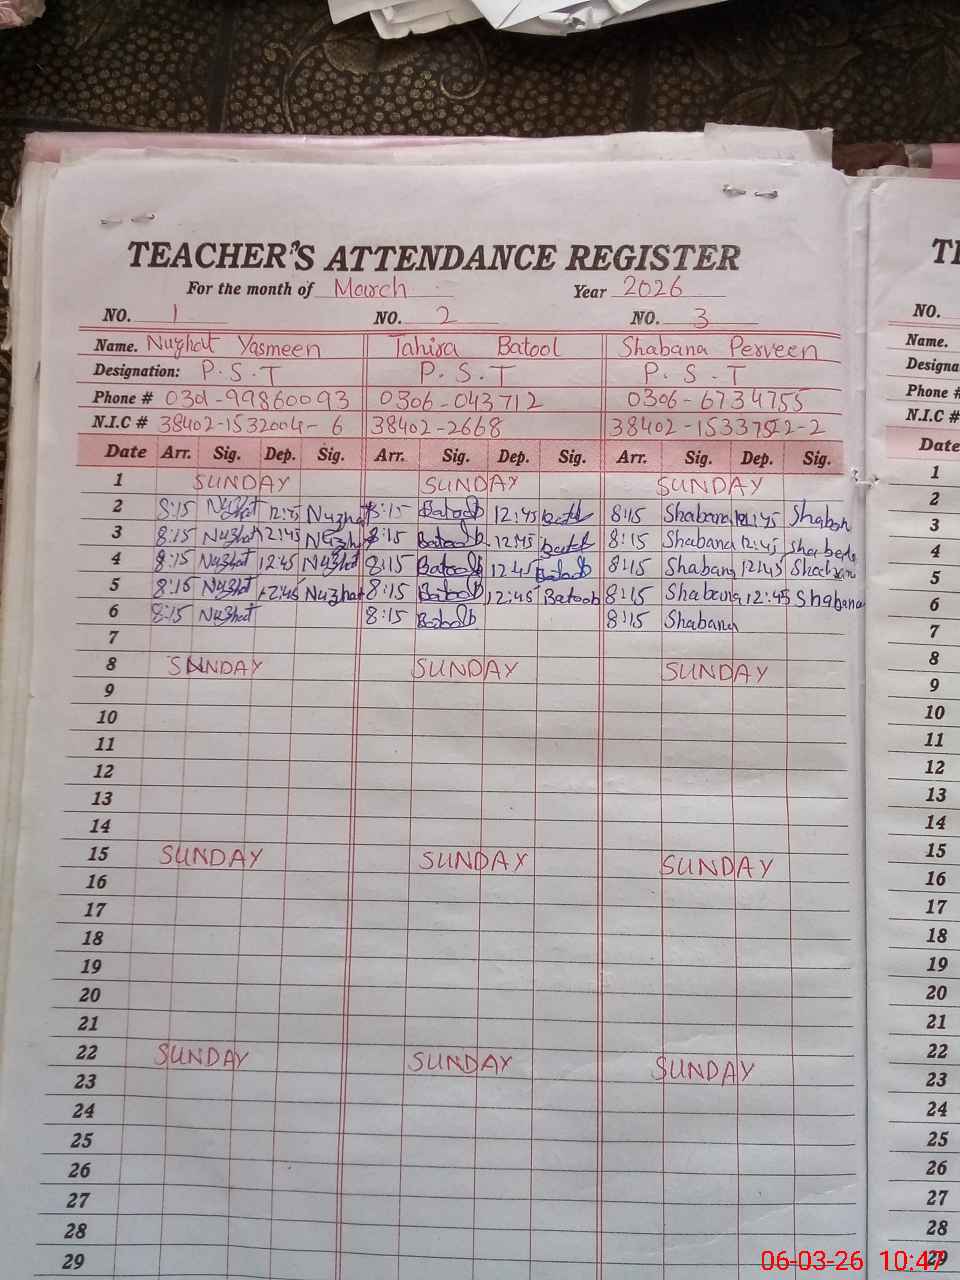 TEACHER'S ATTENDANCE REGISTER
For the month of March Year 2026
NO. 1 NO. 2 NO. 3
Name. Nuzhat Yasmeen Tahira Batool Shabana Perveen
Designation: P.S.T P.S.T P.S.T
Phone # 0301-99860093 0306-043712 0306-6734755
N.I.C # 38402-1532004-6 38402-2668
Date Arr. Sig. Dep. Sig. Arr. Sig. Dep. Sig. Arr. Sig. Dep. Sig.
1 SUNDAY SUNDAY SUNDAY
2 8:15 Nuzhat 12:45 Nuzhat 8:15 Batool 12:45 Batool 8:15 Shabana 12:45 Shabana
3 8:15 Nuzhat 12:45 Nuzhat 8:15 Batool 12:45 Batool 8:15 Shabana 12:45
4 8:15 Nuzhat 12:45 Nuzhat 8:15 Batool 12:45 Batool 8:15 Shabana 12:45
5 8:15 Nuzhat 12:45 Nuzhat 8:15 Batool 12:45 Batool 8:15 Shabana 12:45 Shabana
6 8:15 Nuzhat 8:15 Batool 8:15 Shabana
7
8 SUNDAY SUNDAY SUNDAY
9
10
11
12
13
14
15 SUNDAY SUNDAY SUNDAY
16
17
18
19
20
21
22 SUNDAY SUNDAY SUNDAY
23
24
25
26
27
28
29
NO.
Name.
Phone #
N.I.C #
Date
1
2
3
4
5
6
7
8
9
10
11
12
13
14
15
16
17
18
19
20
21
22
23
24
25
26
27
28
29
06-03-26 10:47